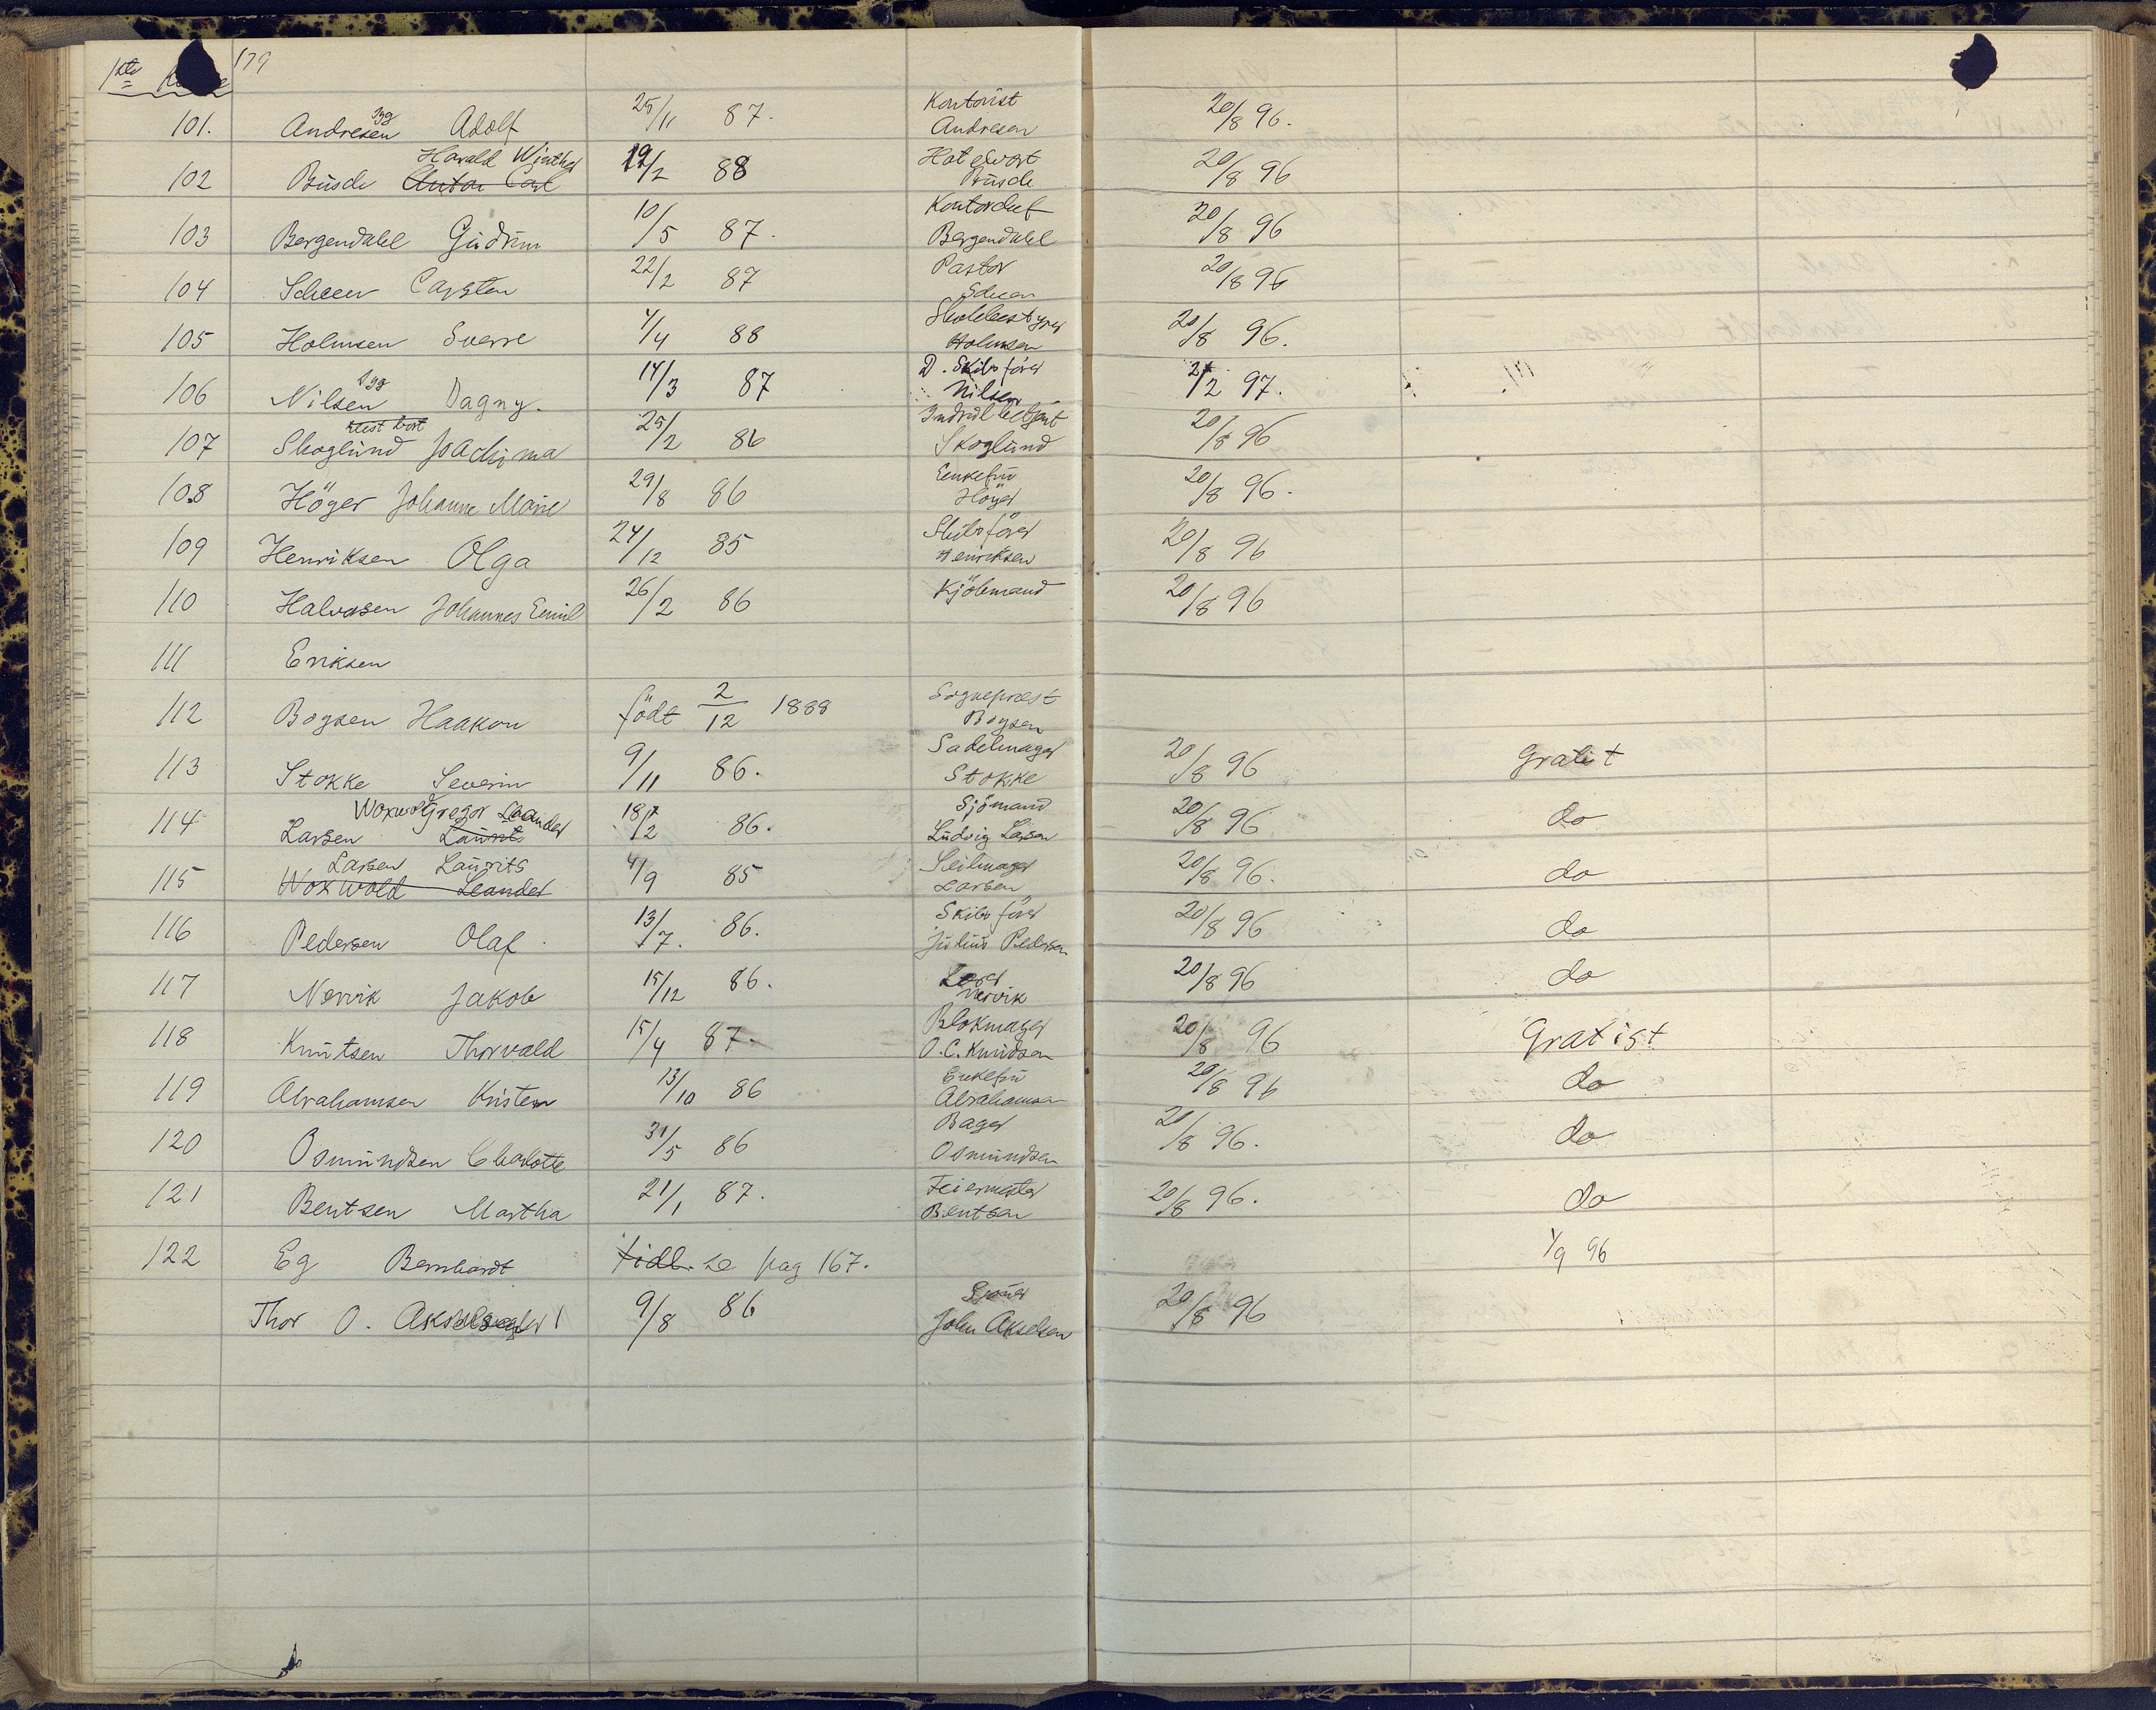 1ste 179
101. Andresen Adolf 25/11 87. Kontorist Andresen 20/8 96.
Harald Winther
102 Büsch Anton Carl 19/2 88 Hotelvert Büsch 20/8 96
103 Bergendahl Gudrun 10/5 87. Kontorchef Bergendahl 20/8 96
104 Scheen Carsten 22/2 87 Pastor Scheen 20/8 96
105 Holmsen Sverre 4/4 88 Skolebestyrer Holmsen 20/8 96.
106 Nilsen Dagny. 14/3 87 D. Skibsfører Nilsen 2/2 97.
reist bort
107 Skoglund Joachima 25/2 86 Skoglund 20/8 96
108 Höyer Johanne Marie 29/8 86 Enkefru Höyer 20/8 96.
109 Henriksen Olga 24/12 85 Skibsförer Henriksen 20/8 96
110 Halvorsen Johannes Emil 26/2 86 Kjöbmand 20/8 96
111 Eriksen
112 Boysen Haakon födt 2/12 1888 Sogneprest Boysen
113 Stokke Severin 9/11 86. Sadelmager Stokke 20/8 96 Gratist
Woxwold Gregor Leander
114 Larsen Laurits 18/2 86. Sjömand Ludvig Larsen 20/8 96 do
Larsen Laurits
115 Woxwold Leander 4/9 85 Seilmager Larsen 20/8 96. do
116 Pedersen Olaf 13/7. 86. Skibsförer Julius Pedersen 20/8 96 do
117 Nervik Jakob 15/12 86. Nervik 20/8 96 do
118 Knutsen Thorvald 15/4 87. Blokmager O. C. Knudsen 20/8 96 Gratist
119 Abrahamsen Kristen 13/10 86 Enkefru Abrahamsen 20/8 96 do
120 Osmundsen Charlotte 31/5 86 Bager Osmundsen 20/8 96. do
121 Bentsen Martha 21/1 87. Feiermester Bentsen 20/8 96. do
122 Eg Bernhardt tidl. se pag 167. 1/9 96
Thor O. Akselsen 9/8 86 John Akselsen 20/8 96